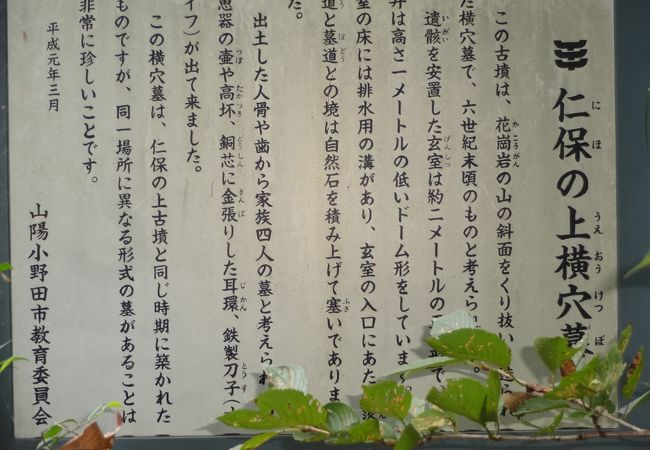 仁保の上横穴墓
にほ うえおうけつぼ
この古墳は、花崗岩の山の斜面をくり抜い
かこうがん
た横穴墓で、六世紀末頃のものと考えられ
遺骸を安置した玄室は約二メートルの
いがい げんしつ
井は高さ一メートルの低いドーム形をしています。
室の床には排水用の溝があり、玄室の入口にあた
道と墓道との境は自然石を積み上げて塞いでありま
どう ぼどう ふさ
た。
出土した人骨や歯から家族四人の墓と考えられ
恵器の壺や高坏、銅芯に金張りした耳環、鉄製刀子(
つぼ たかつき どうしん きんば じかん とうす
イフ)が出て来ました。
この横穴墓は、仁保の上古墳と同じ時期に築かれた
ものですが、同一場所に異なる形式の墓があることは
非常に珍しいことです。
平成元年三月
山陽小野田市教育委員会